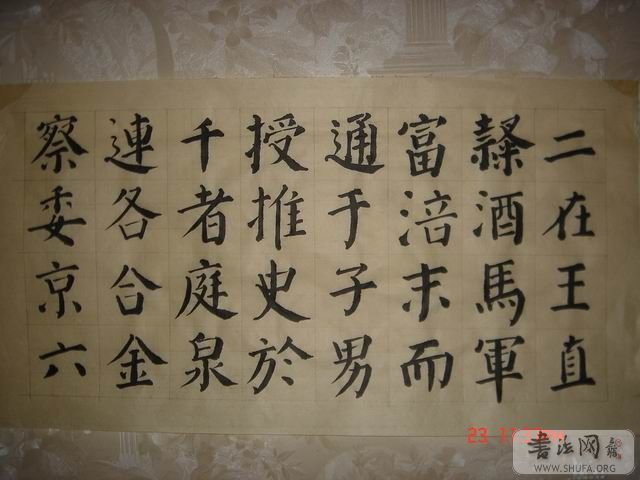 二在王直
酒馬軍
富涪末而
通于子男
授推史於
千者庭泉
連各合金
察委京六
23
書法网
WWW.SHUFA.ORG